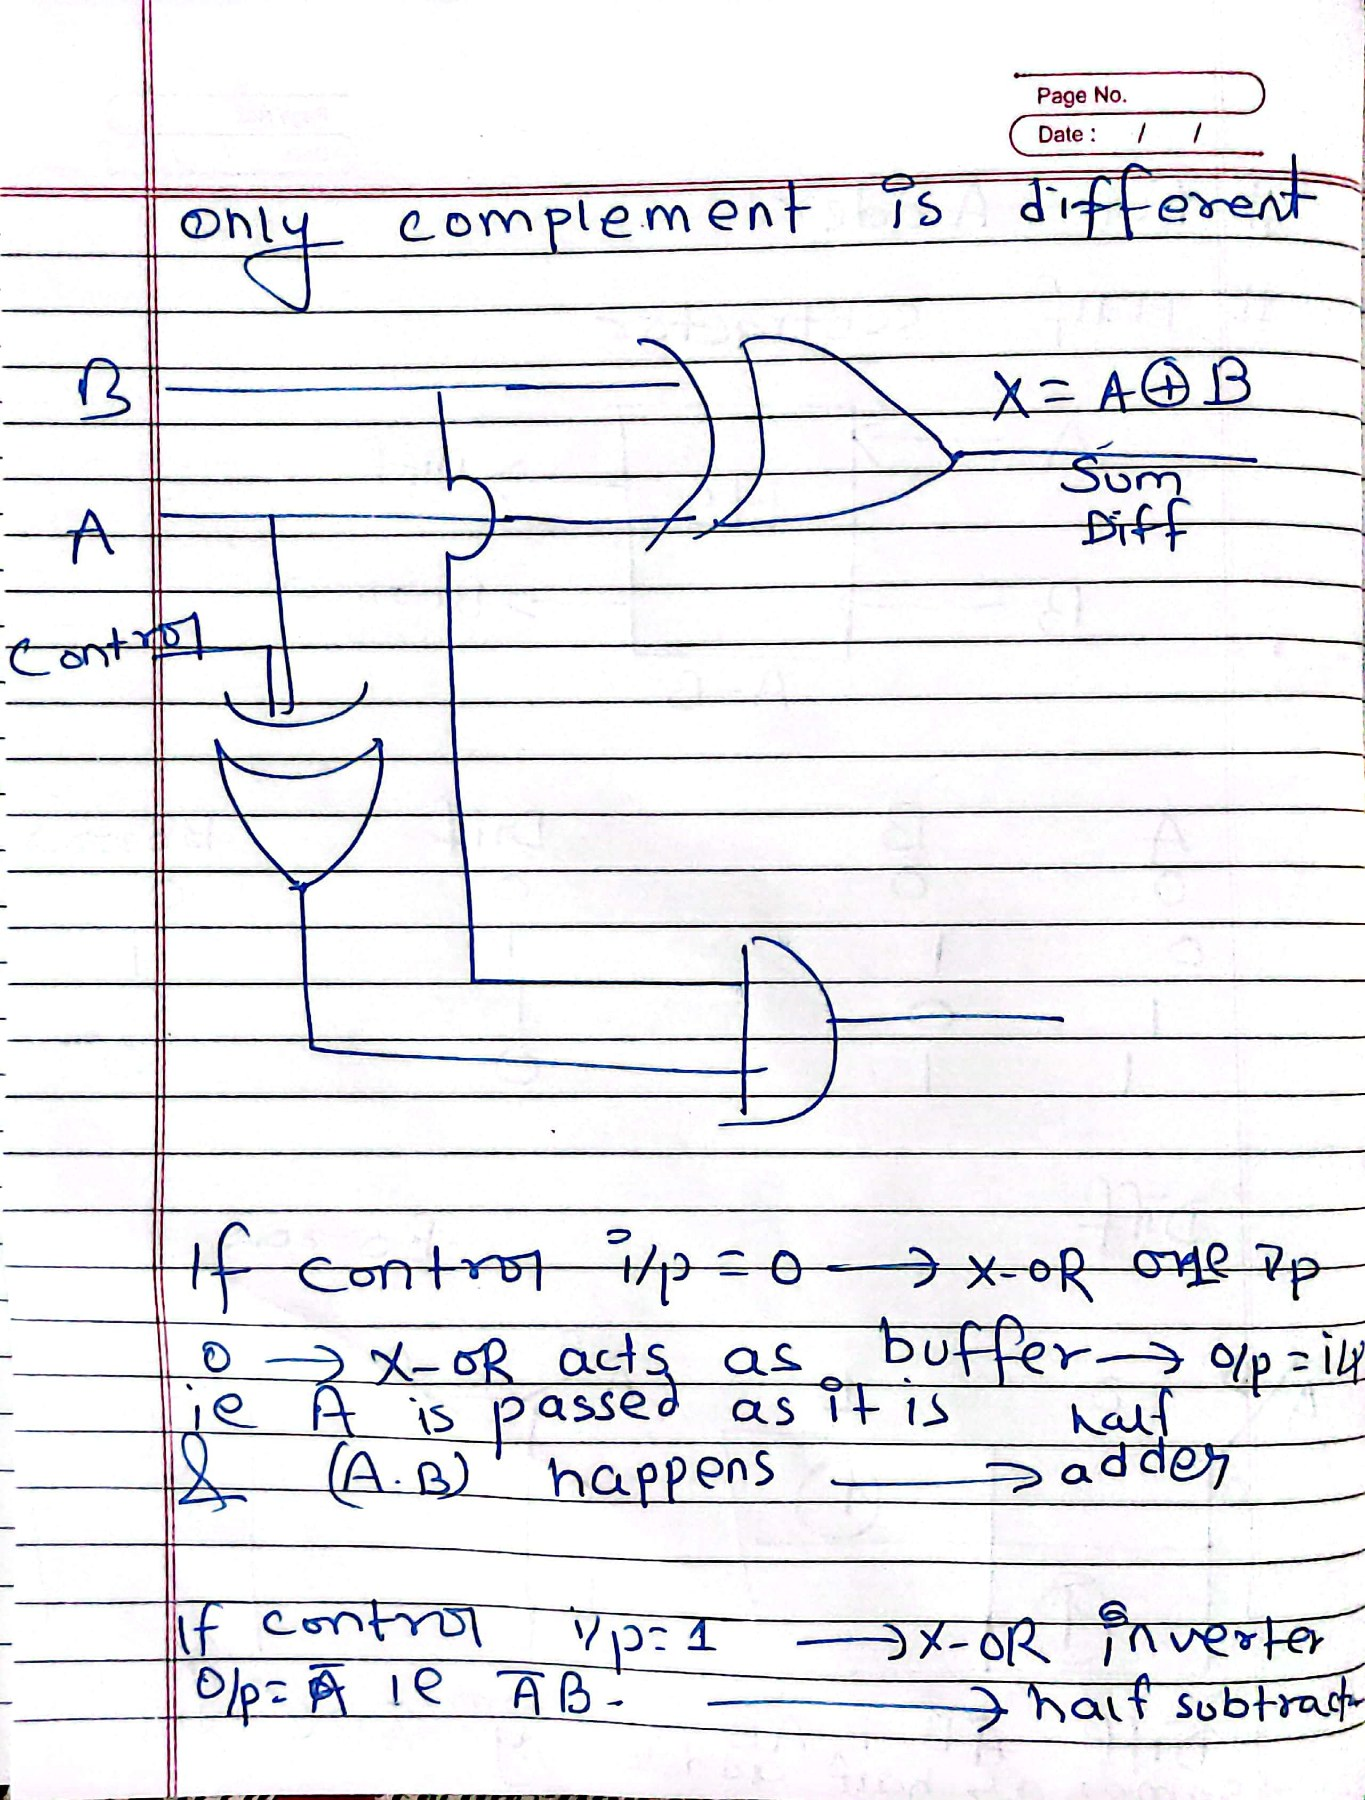 Page No.
Date : / /
only complement is different
B
X = A ⊕ B
Sum
Diff
A
Control
If control i/p = 0 → X-OR one ip
0 → X-OR acts as buffer → o/p = i/p
ie A is passed as it is half
& (A.B) happens → adder
If control i/p = 1 → X-OR inverter
o/p = Ā ie ĀB. → half subtract